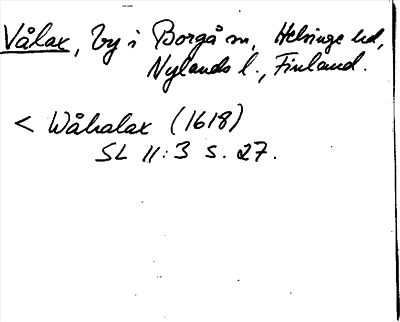 Vålax, by i Borgå sn, Helsinge hd,
Nylands l., Finland.
< Wåhalax (1618)
SL 11:3 s. 27.